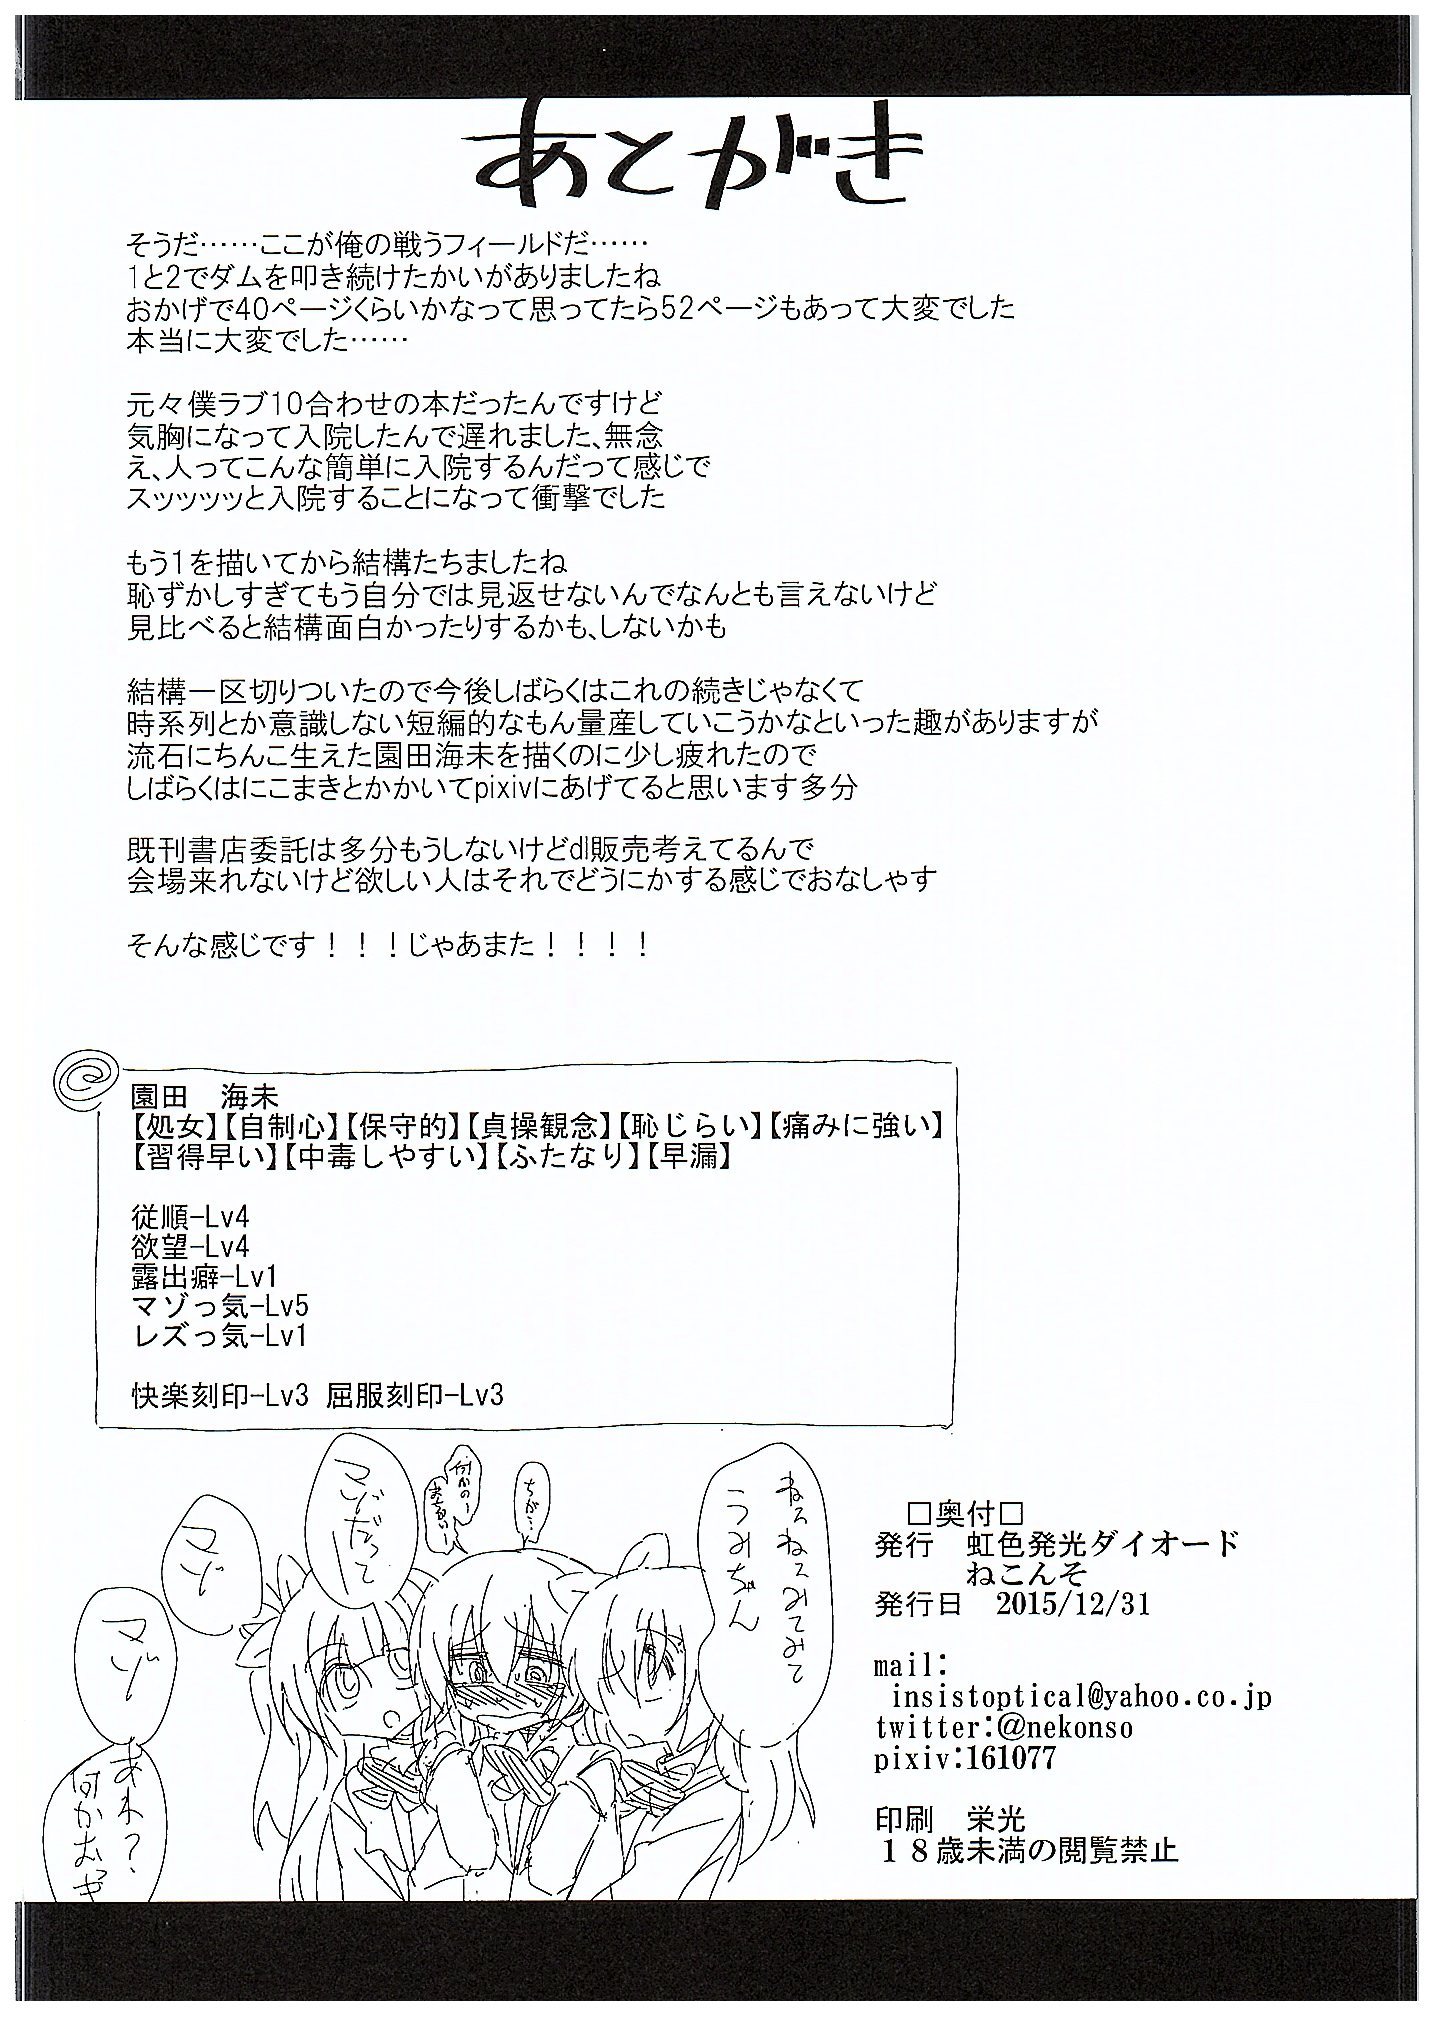 あとがき
そうだ……ここが俺の戦うフィールドだ……
1と2でダムを叩き続けたかいがありましたね
おかげで40ページくらいかなって思ってたら52ページもあって大変でした
本当に大変でした……
元々僕ラブ10合わせの本だったんですけど
気胸になって入院したんで遅れました、無念
え、人ってこんな簡単に入院するんだって感じで
スッッッッと入院することになって衝撃でした
もう1を描いてから結構たちましたね
恥ずかしすぎてもう自分では見返せないんでなんとも言えないけど
見比べると結構面白かったりするかも、しないかも
結構一区切りついたので今後しばらくはこれの続きじゃなくて
時系列とか意識しない短編的なもん量産していこうかなといった趣がありますが
流石にちんこ生えた園田海未を描くのに少し疲れたので
しばらくはにこまきとかかいてpixivにあげてると思います多分
既刊書店委託は多分もうしないけどdl販売考えてるんで
会場来れないけど欲しい人はそれでどうにかする感じでおなしゃす
そんな感じです！！！じゃあまた！！！！
園田　海未
【処女】【自制心】【保守的】【貞操観念】【恥じらい】【痛みに強い】
【習得早い】【中毒しやすい】【ふたなり】【早漏】
従順-Lv4
欲望-Lv4
露出癖-Lv1
マゾっ気-Lv5
レズっ気-Lv1
快楽刻印-Lv3 屈服刻印-Lv3
ねえねえみてみて
うみちゃん
ちが…
何かの
マゾだって
マゾ
マゾ
あれ？
□奥付□
発行　虹色発光ダイオード
ねこんそ
発行日　2015/12/31
mail:
insistoptical@yahoo.co.jp
twitter:@nekonso
pixiv:161077
印刷　栄光
１８歳未満の閲覧禁止